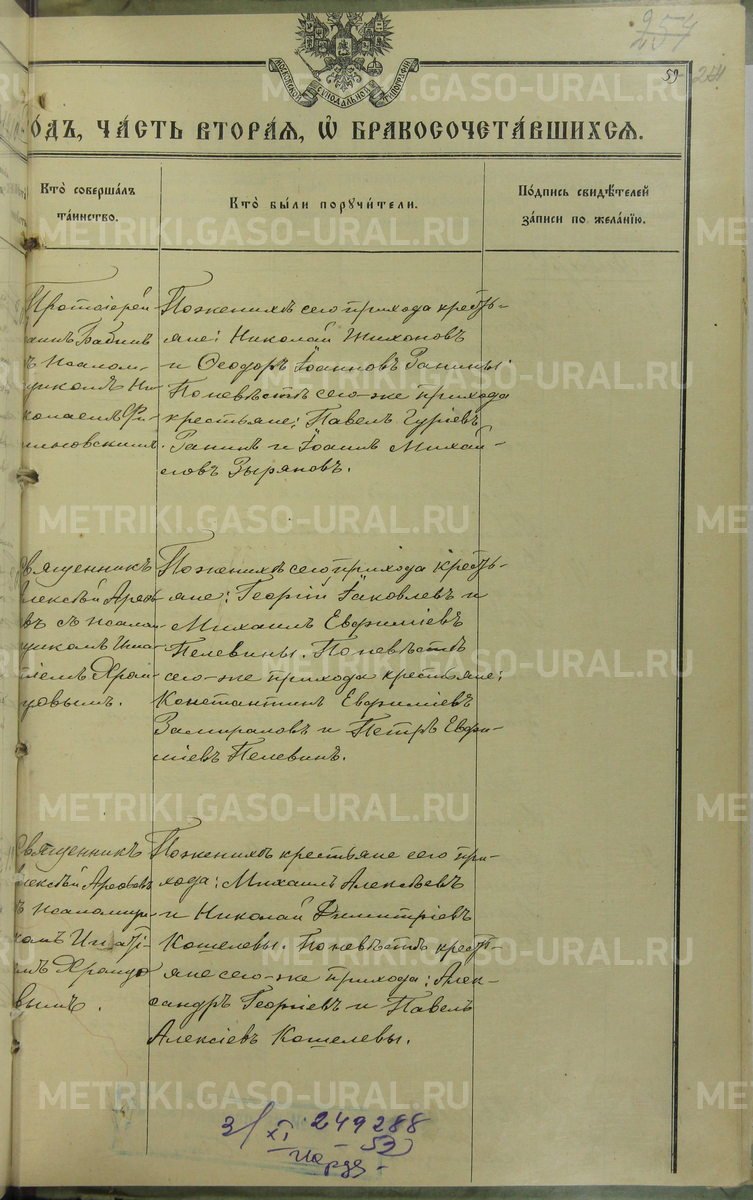 254
59
МОСКОВСКОЙ СѴНОДАЛЬНОЙ ТИПОГРАФІИ
ОДЪ, ЧА́СТЬ ВТОРА́Я, Ѡ҆ БРАКОСОЧЕТА́ВШИХСЯ.
Кто̀ соверша́лъ та́инство.
Кто̀ бы́ли поручи́тели.
По́дпись свидѣ́телей за́писи по жела́нїю.
Протоіерей
Бабинъ
ъ псалом-
щикомъ Ни-
колаемъ Фи-
. . . новскимъ.
По женихѣ сего прихода кресть-
яне: Николай Тихоновъ
и Ѳеодоръ Іоанновъ Ранины;
По невѣстѣ сего-же прихода
крестьяне: Павелъ Гуріевъ
Ранинъ и Іоаннъ Михай-
ловъ Зыряновъ.
вященникъ
лексѣй Арефь-
въ съ псалом-
щикомъ Игна-
тіемъ Храм-
цовымъ.
По женихѣ сего прихода кресть-
яне: Георгій Іаковлевъ и
Михаилъ Евфиміевъ
Пелевины. По невѣстѣ
сего-же прихода крестьяне:
Константинъ Евфиміевъ
Замираловъ и Петръ Евфи-
міевъ Пелевинъ.
вященникъ
лексѣй Арефьевъ
ъ псаломщи-
комъ Игнаті-
мъ Храмцо-
вымъ.
По женихѣ крестьяне сего при-
хода: Михаилъ Алексѣевъ
и Николай Димитріевъ
Кошелевы. По невѣстѣ кресть-
яне сего-же прихода: Алек-
сандръ Георгіевъ и Павелъ
Алексіевъ Кошелевы.
3/XI 249288
METRIKI.GASO-URAL.RU